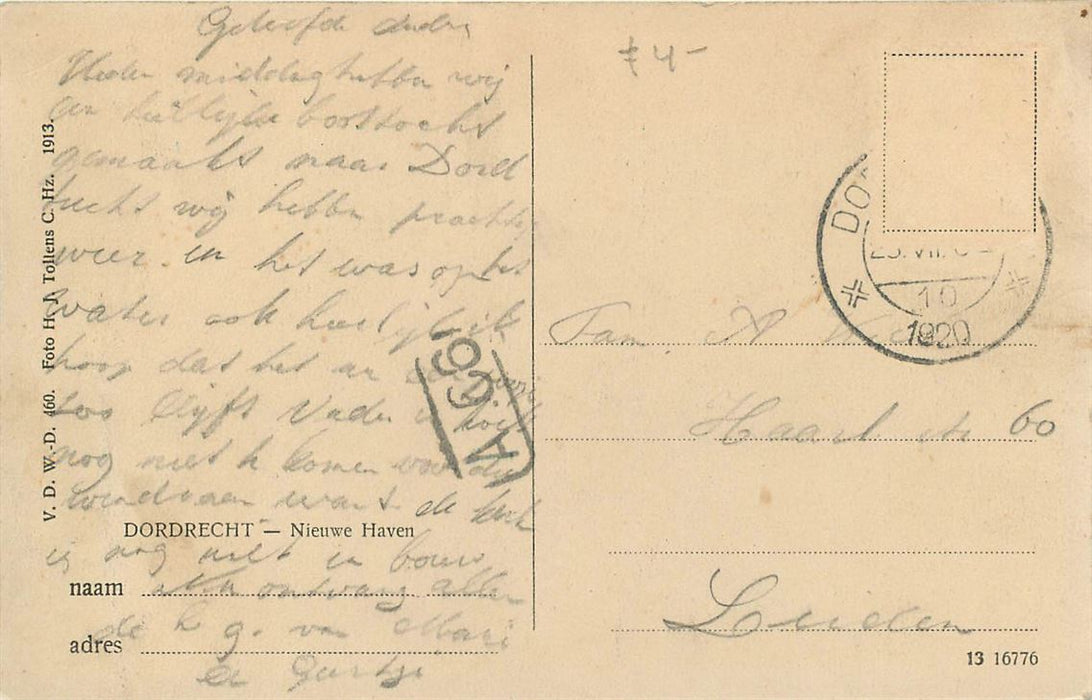 Geliefde ouders
Heden middag hebben wij
een heerlijke boottocht
gemaakt naar Dord
recht wij hebben prachtig
weer en het was op het
water ook heerlijk ik
hoop dat het
zoo blijft Vader
nog niet te komen voor de
windvaan want de kerk
is nog niet in bouw
ontvang allen
de h g. van Marie
en Geertje
V. D. W.-D. 460. Foto H. J. Tollens C. Hz. 1913.
DORDRECHT — Nieuwe Haven
naam
adres
160
A
4-
DO
VII
10
1920
Fam. A
Haarl str 60
Leiden
13 16776